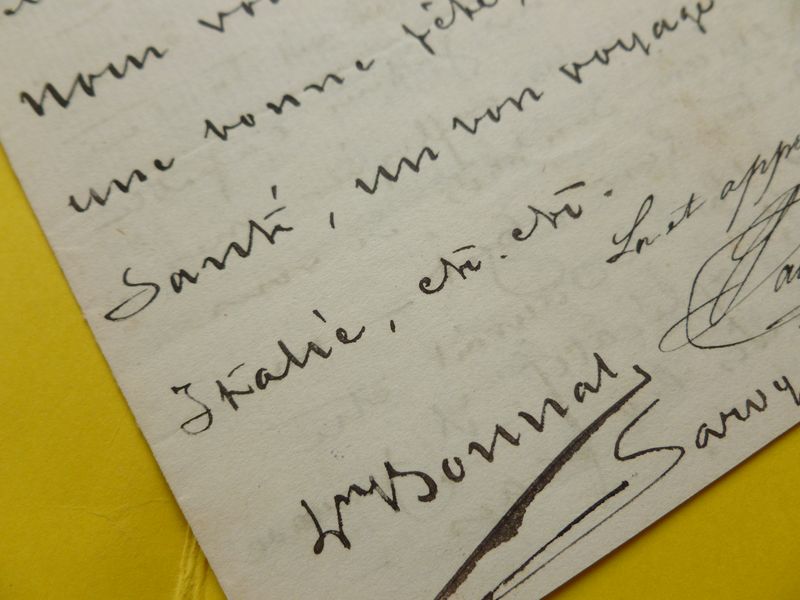 nom vo
une bonne fête,
Santé, un bon voyage
Italie, etc. etc.
Lu et app
Ln Bonnat
Sarvy